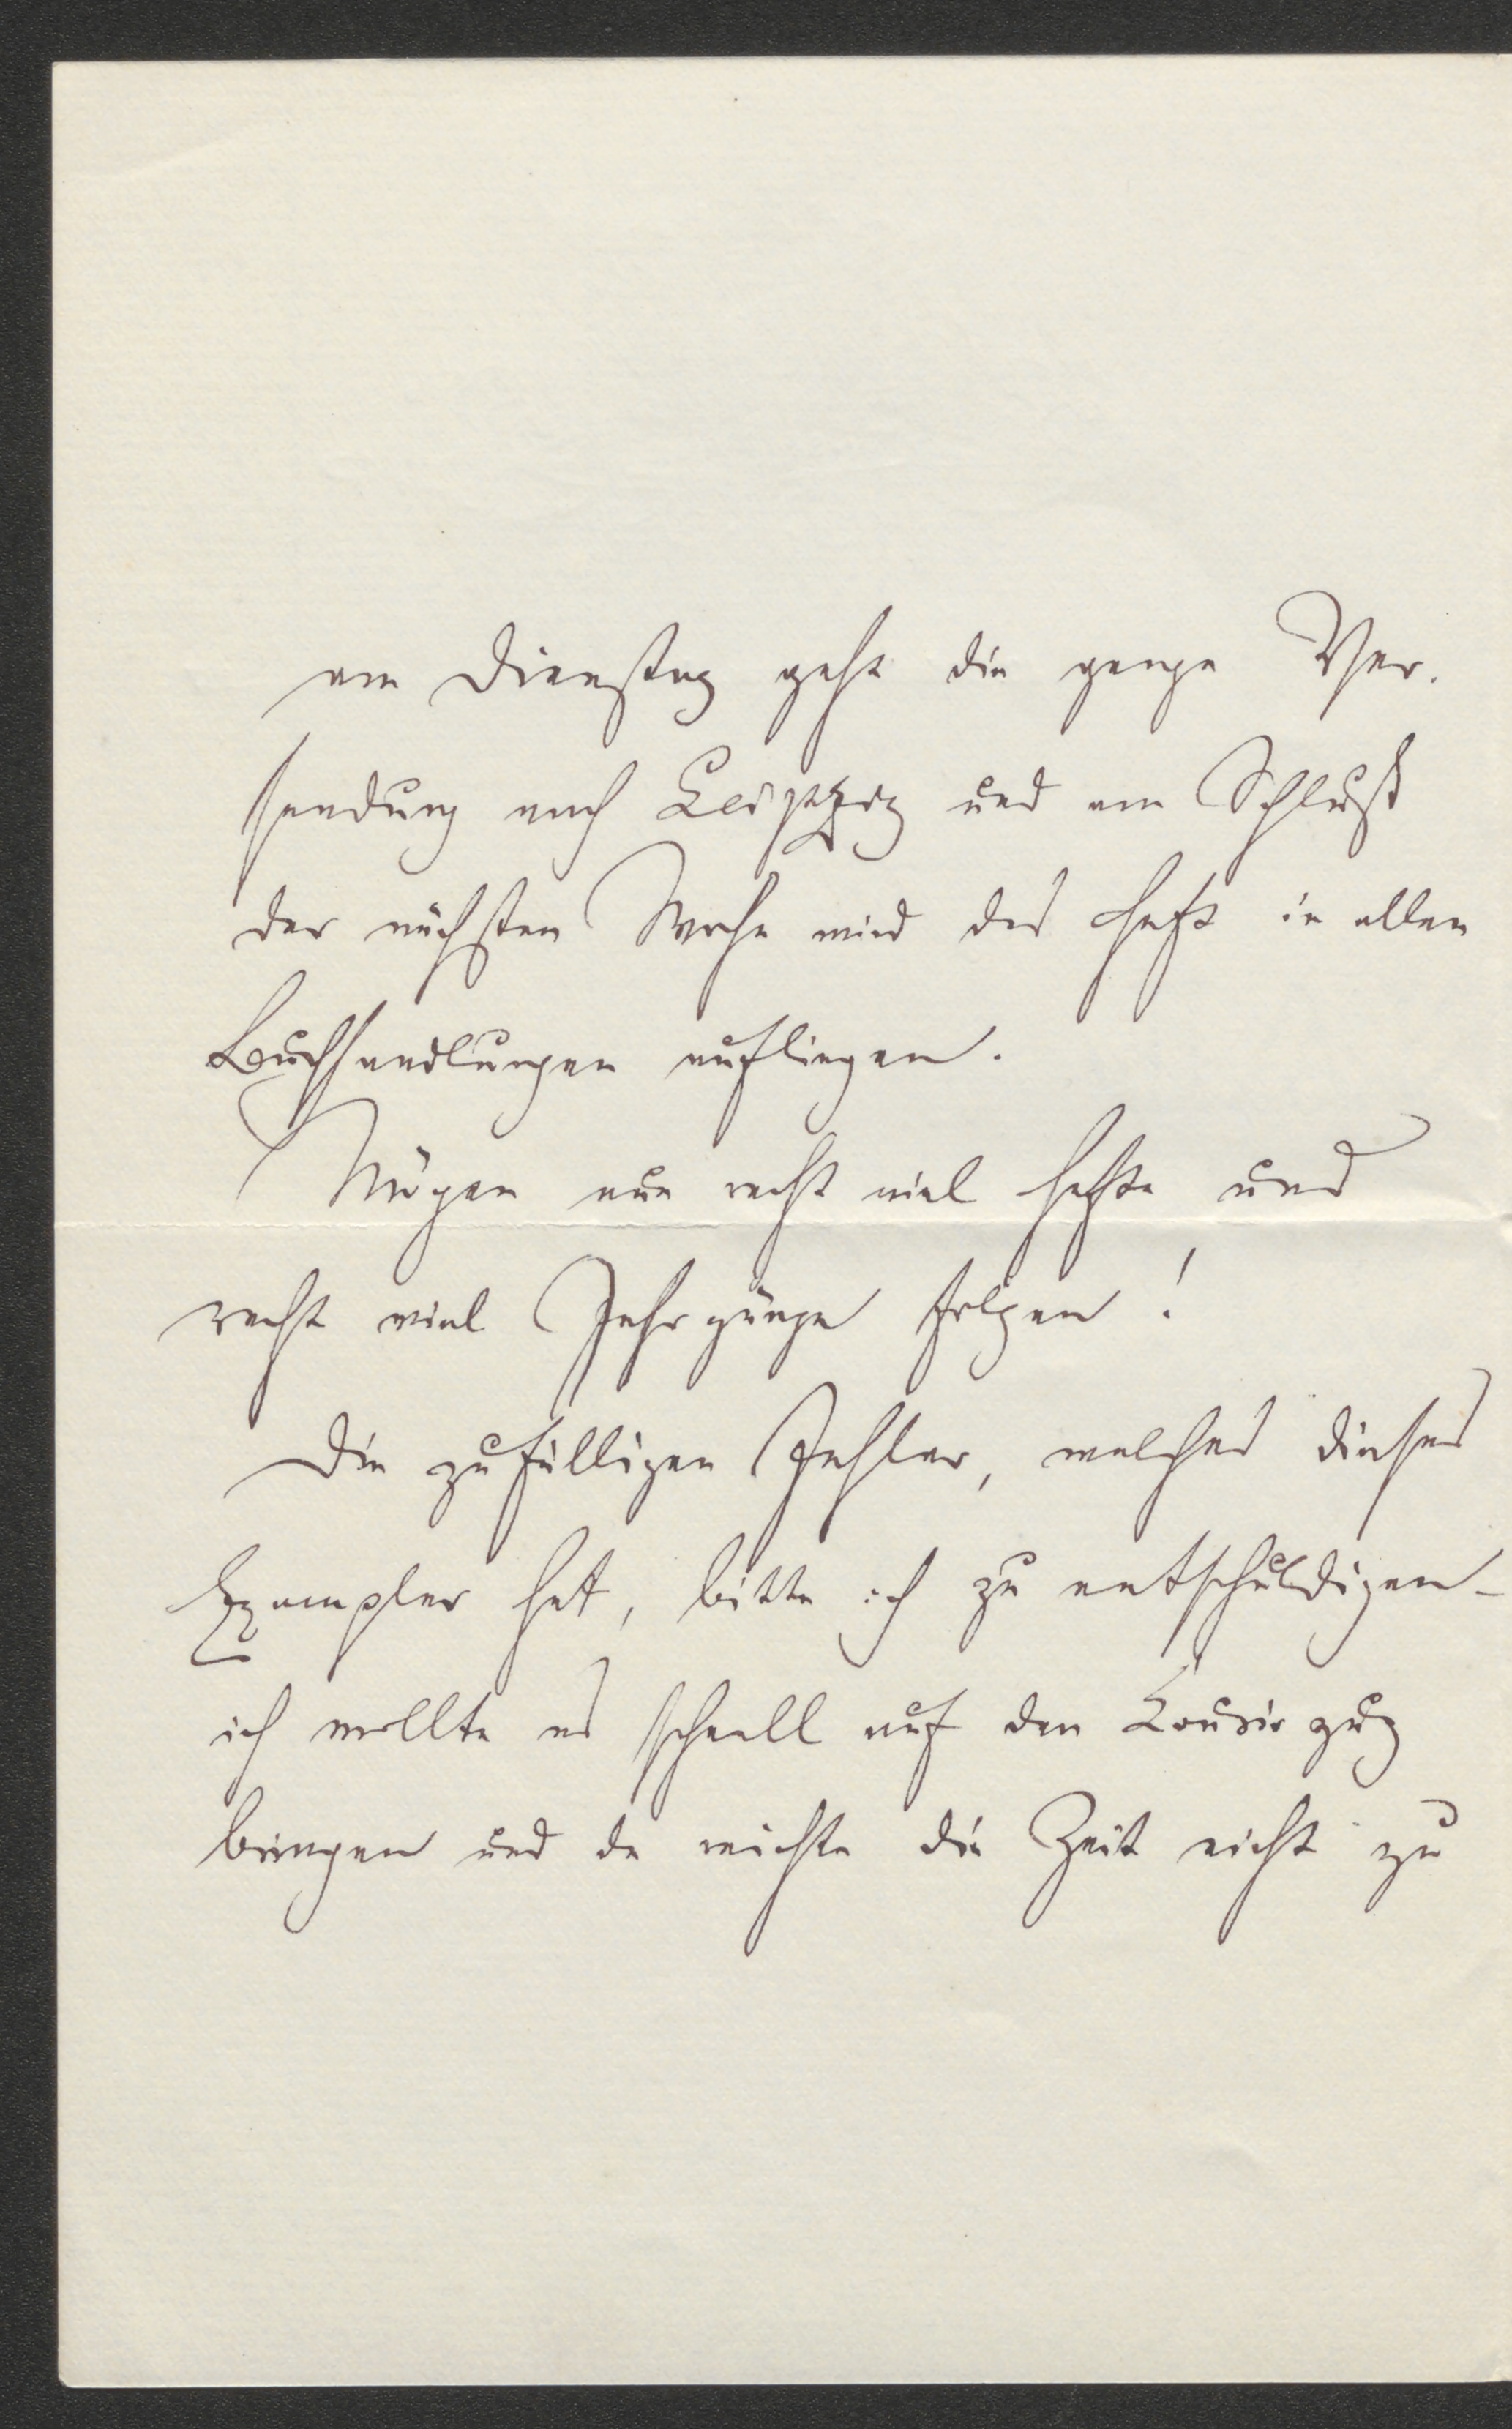 am Dienstag geht die ganze Ver-
sendung nach Leipzig und am Schluß
der nächsten Woche wird das Heft in allen
Buchhandlungen aufliegen.
Mögen nun recht viel Hefte und
recht viel Jahrgänge folgen!
Die zufälligen Fehler, welches dieses
Exemplar hat, bitte ich zu entschuldigen –
ich wollte es schnell auf den Courirzug
bringen und da reichte die Zeit nicht zu